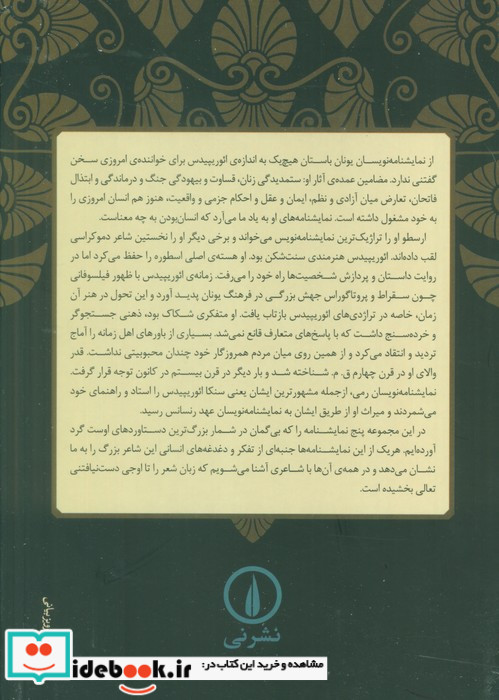 از نمایشنامه‌نویسان یونان باستان هیچ‌یک به اندازه‌ی ائوریپیدس برای خواننده‌ی امروزی سخن
گفتنی ندارد. مضامین عمده‌ی آثار او: ستمدیدگی زنان، قساوت و بیهودگی جنگ و درماندگی و ابتذال
فاتحان، تعارض میان آزادی و نظم، ایمان و عقل و احکام جزمی و واقعیت، هنوز هم انسان امروزی را
به خود مشغول داشته است. نمایشنامه‌های او به یاد ما می‌آرد که انسان‌بودن به چه معناست.
ارسطو او را تراژیک‌ترین نمایشنامه‌نویس می‌خواند و برخی دیگر او را نخستین شاعر دموکراسی
لقب داده‌اند. ائوریپیدس هنرمندی سنت‌شکن بود. او هسته‌ی اصلی اسطوره را حفظ می‌کرد اما در
روایت داستان و پردازش شخصیت‌ها راه خود را می‌رفت. زمانه‌ی ائوریپیدس با ظهور فیلسوفانی
چون سقراط و پروتاگوراس جهش بزرگی در فرهنگ یونان پدید آورد و این تحول در هنر آن
زمان، خاصه در تراژدی‌های ائوریپیدس بازتاب یافت. او متفکری شکاک بود، ذهنی جستجوگر
و خرده‌سنج داشت که با پاسخ‌های متعارف قانع نمی‌شد. بسیاری از باورهای اهل زمانه را آماج
تردید و انتقاد می‌کرد و از همین روی میان مردم همروزگار خود چندان محبوبیتی نداشت. قدر
والای او در قرن چهارم ق. م. شناخته شد و بار دیگر در قرن بیستم در کانون توجه قرار گرفت.
نمایشنامه‌نویسان رمی، ازجمله مشهورترین ایشان یعنی سنکا ائوریپیدس را استاد و راهنمای خود
می‌شمردند و میراث او از طریق ایشان به نمایشنامه‌نویسان عهد رنسانس رسید.
در این مجموعه پنج نمایشنامه را که بی‌گمان در شمار بزرگ‌ترین دستاوردهای اوست گرد
آورده‌ایم. هریک از این نمایشنامه‌ها جنبه‌ای از تفکر و دغدغه‌های انسانی این شاعر بزرگ را به ما
نشان می‌دهد و در همه‌ی آن‌ها با شاعری آشنا می‌شویم که زبان شعر را تا اوجی دست‌نیافتنی
تعالی بخشیده است.
نشرنی
مشاهده و خرید این کتاب در:
idebook.ir